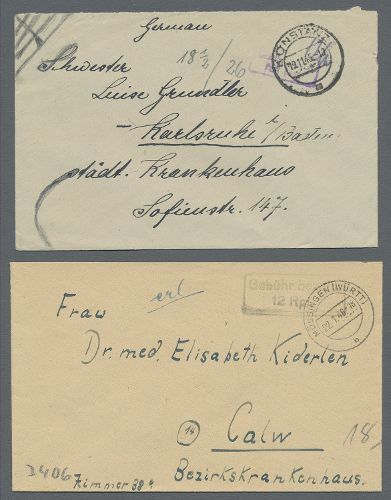 German
18 1/2 / 26
KONSTANZ
Schwester
Luise Grundler
Karlsruhe i/Baden
städt. Krankenhaus
Sofienstr. 147.
Gebühr
12 Rpf
MÖSSINGEN (WÜRTT)
22.1.46
b
erl
Frau
Dr. med. Elisabeth Kiderlen
14 Calw
18
Bezirkskrankenhaus.
2406
Zimmer 38